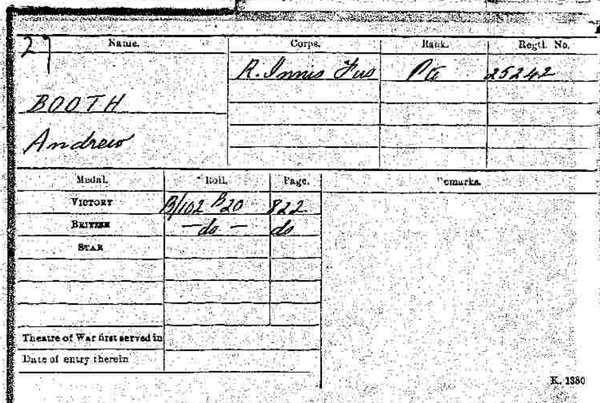 27
Name. Corps. Rank. Regtl. No.
R. Innis Fus Pte 25242
BOOTH
Andrew
Medal. Roll. Page. Remarks.
VICTORY B/102 B20 822
BRITISH —do— do
STAR
Theatre of War first served in
Date of entry therein
K. 1380